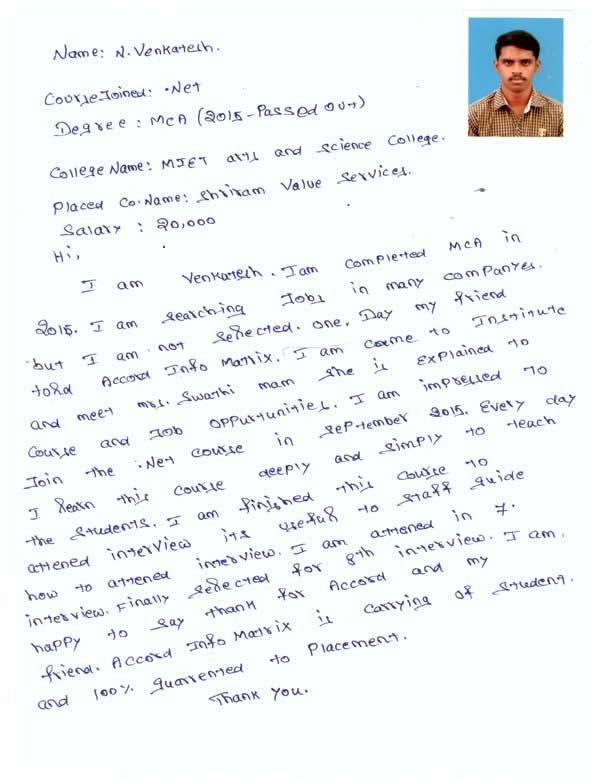 Name: N. Venkatesh.
Course Joined: .Net
Degree: MCA (2015-Passed out)
College Name: MIET arts and science College.
Placed Co.Name: Shriram Value Services.
Salary : 20,000
Hi,
I am Venkatesh. I am completed MCA in
2015. I am searching Jobs in many companyes.
but I am not selected. one. Day my friend
told Accord Info Matrix. I am come to Institute
and meet mrs. Swathi mam she is explained to
Course and Job oppurtunities. I am impressed to
Join the .Net course in september 2015. Every day
I learn this course deeply and simply to teach
the students. I am finished this course to
attened interview its useful to staff guide
how to attened interview. I am attened in 7.
interview. Finally selected for 8th interview. I am.
happy to say thank for Accord and my
friend. Accord Info Matrix is carrying of student.
and 100% guarrented to Placement.
Thank you.